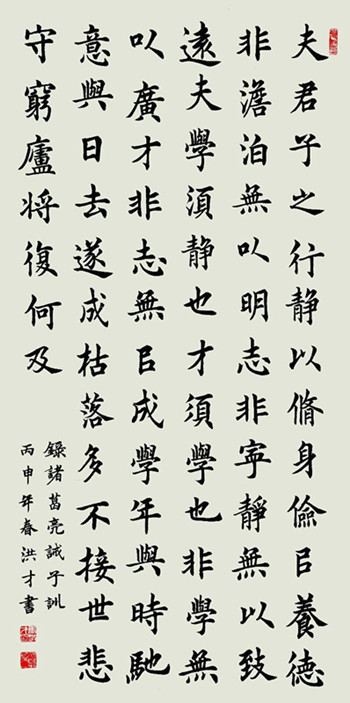 夫君子之行静以脩身儉㠯養德
非澹泊無以明志非寧靜無以致
遠夫學須静也才須學也非學無
以廣才非志無㠯成學年與時馳
意與日去遂成枯落多不接世悲
守窮廬将復何及
錄諸葛亮誡子訓
丙申年春洪才書